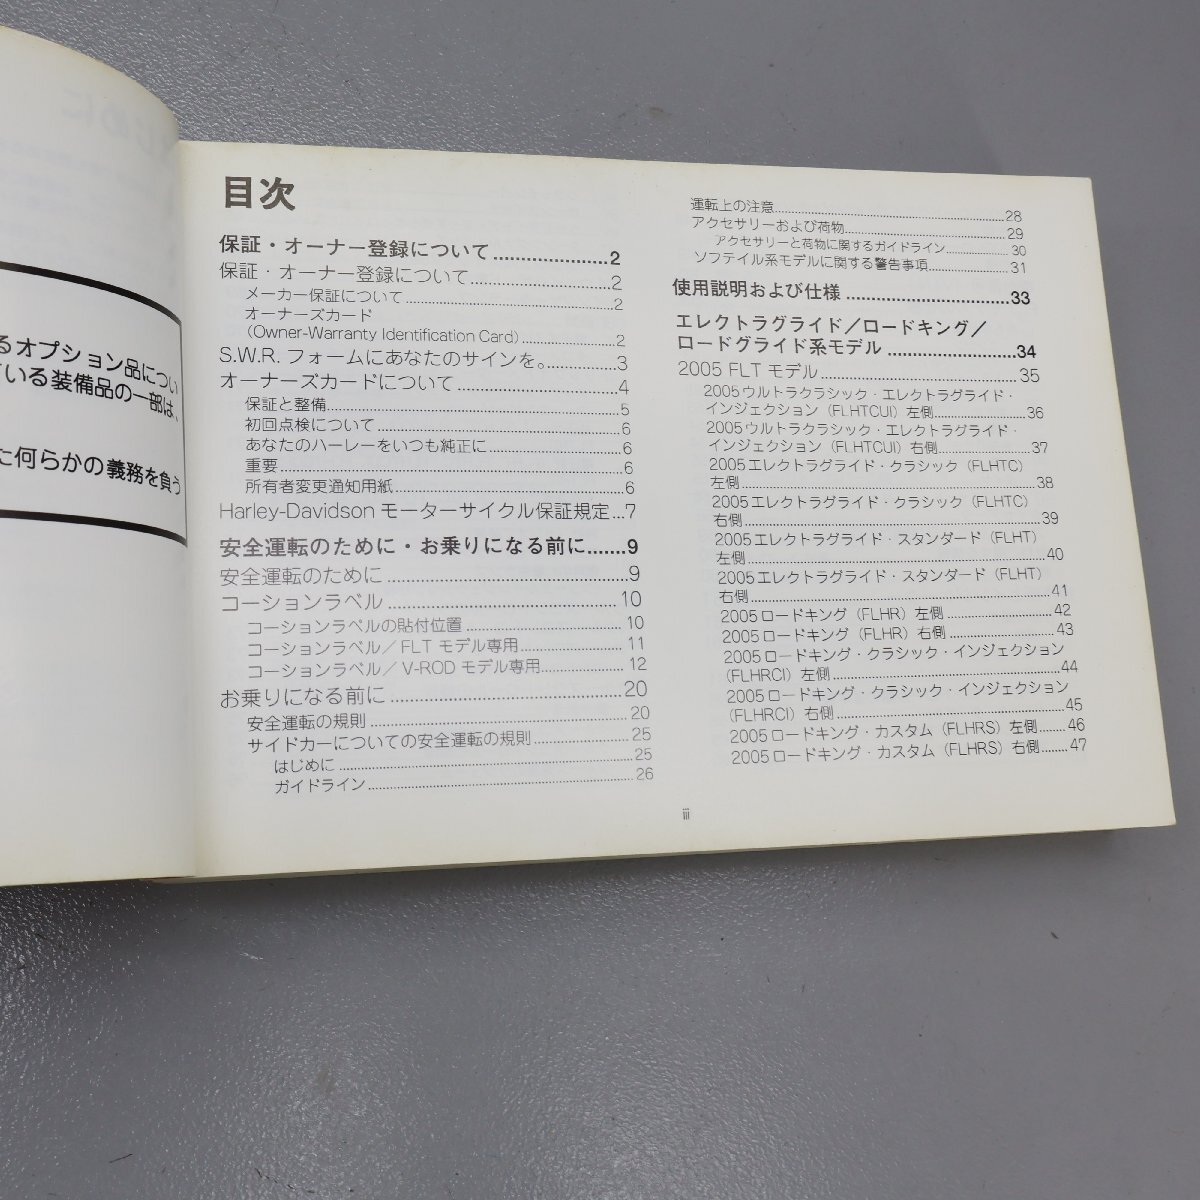 るオプション品につい
ている装備品の一部は、
た何らかの義務を負う
目次
保証・オーナー登録について......................2
保証・オーナー登録について..........................2
メーカー保証について..........................................2
オーナーズカード
（Owner-Warranty Identification Card)...................2
S.W.R. フォームにあなたのサインを。.............3
オーナーズカードについて.............................4
保証と整備..........................................................5
初回点検について................................................6
あなたのハーレーをいつも純正に..........................6
重要....................................................................6
所有者変更通知用紙.............................................6
Harley-Davidson モーターサイクル保証規定...7
安全運転のために・お乗りになる前に.......9
安全運転のために.............................................9
コーションラベル...........................................10
コーションラベルの貼付位置..............................10
コーションラベル／FLT モデル専用.....................11
コーションラベル／V-ROD モデル専用.................12
お乗りになる前に...........................................20
安全運転の規則..................................................20
サイドカーについての安全運転の規則..................25
はじめに.........................................................25
ガイドライン...................................................26
運転上の注意......................................................28
アクセサリーおよび荷物......................................29
アクセサリーと荷物に関するガイドライン.............30
ソフテイル系モデルに関する警告事項...................31
使用説明および仕様..............................33
エレクトラグライド／ロードキング／
ロードグライド系モデル........................34
2005 FLT モデル............................................35
2005ウルトラクラシック・エレクトラグライド・
インジェクション（FLHTCUI）左側.....................36
2005ウルトラクラシック・エレクトラグライド・
インジェクション（FLHTCUI）右側.....................37
2005エレクトラグライド・クラシック（FLHTC）
左側..................................................................38
2005エレクトラグライド・クラシック（FLHTC）
右側..................................................................39
2005エレクトラグライド・スタンダード（FLHT）
左側..................................................................40
2005エレクトラグライド・スタンダード（FLHT）
右側..................................................................41
2005ロードキング（FLHR）左側.........................42
2005ロードキング（FLHR）右側.........................43
2005ロードキング・クラシック・インジェクション
（FLHRCI）左側..................................................44
2005ロードキング・クラシック・インジェクション
（FLHRCI）右側..................................................45
2005ロードキング・カスタム（FLHRS）左側.......46
2005ロードキング・カスタム（FLHRS）右側.......47
iii